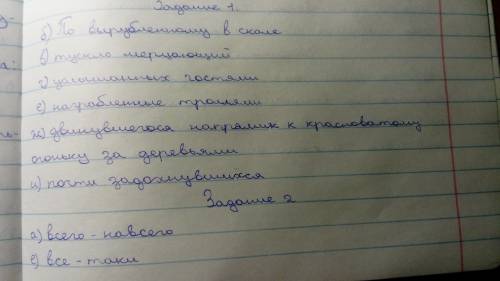 Задание 1.
б) По вырубленному в скале
в) тускло мерцающий
г) услышанных гостями
е) награбленные троллями
ж) двинувшегося напрямик к красноватому
огоньку за деревьями
и) почти задохнувшихся
Задание 2
а) всего - навсего
е) все - таки